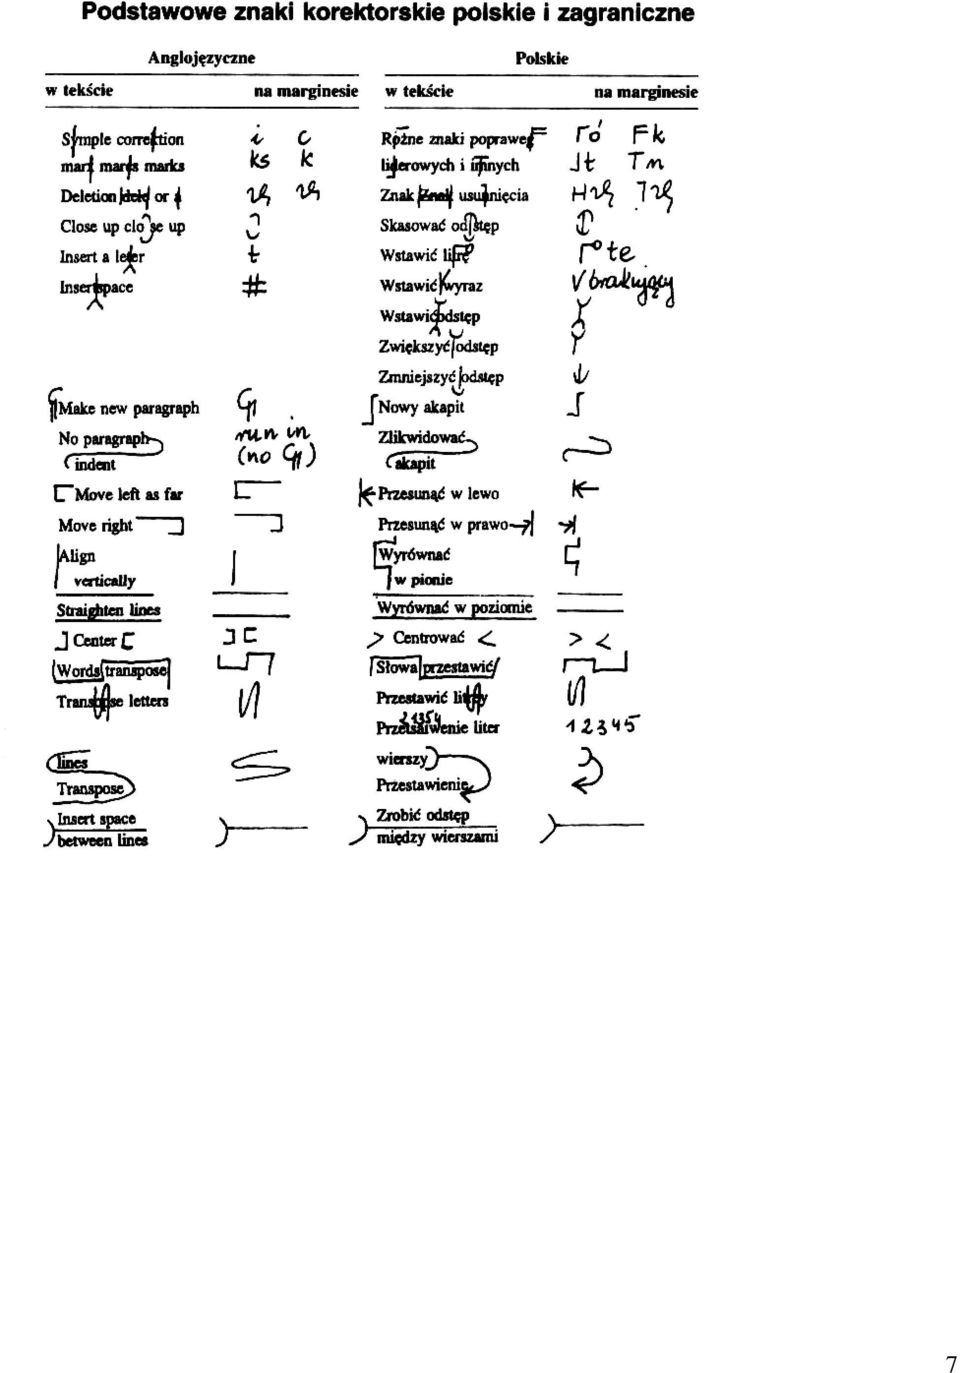 Podstawowe znaki korektorskie polskie i zagraniczne
Anglojęzyczne Polskie
w tekście na marginesie w tekście na marginesie
Symple correction i c Różne znaki poprawek ró Fk
mark marks marks ks k literowych i innych Jt Tm
Deletion or Znak Znak usunięcia
Close up clo se up Skasować odstęp
Insert a leter t Wstawić te
Insert space # Wstawić wyraz V brakujący
Wstawić odstęp
Zwiększyć odstęp
Zmniejszyć odstęp
Make new paragraph Nowy akapit
No paragraph run in Zlikwidować
indent (no ¶) akapit
Move left as far Przesunąć w lewo
Move right Przesunąć w prawo
Align Wyrównać
vertically w pionie
Straighten lines Wyrównać w poziomie
Center Centrować
Words transpose Słowa przestawić
Transpose letters Przestawić litery
21354
liter 1 2 3 4 5
lines wierszy
Transpose Przestawienie
Insert space Zrobić odstęp
between lines między wierszami
7